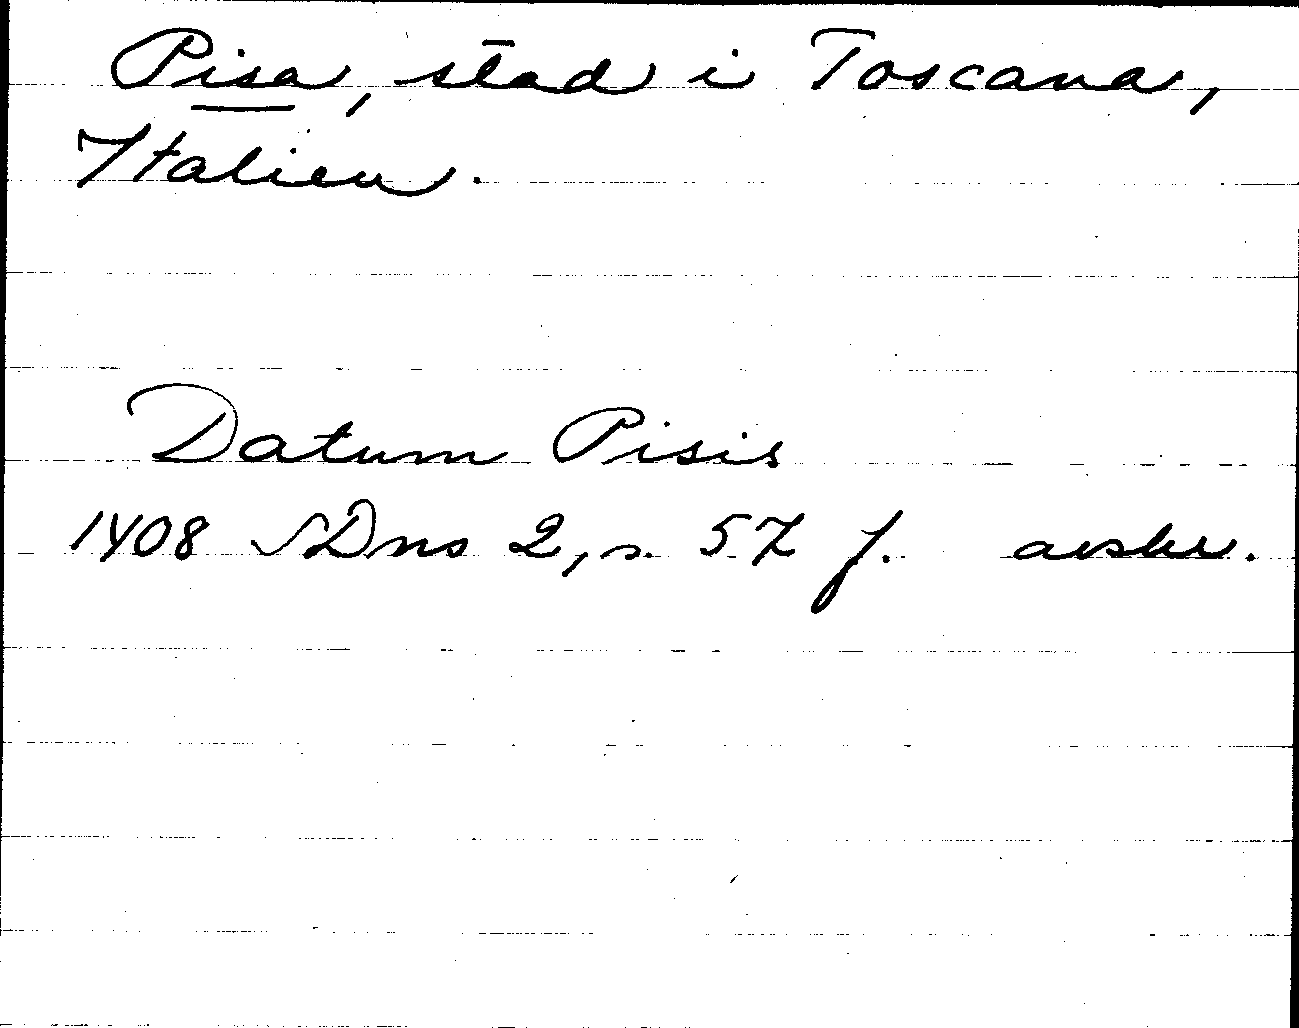 Pisa, stad i Toscana,
Italien.
Datum Pisis
1408 SDns 2, s. 57 f. avskr.